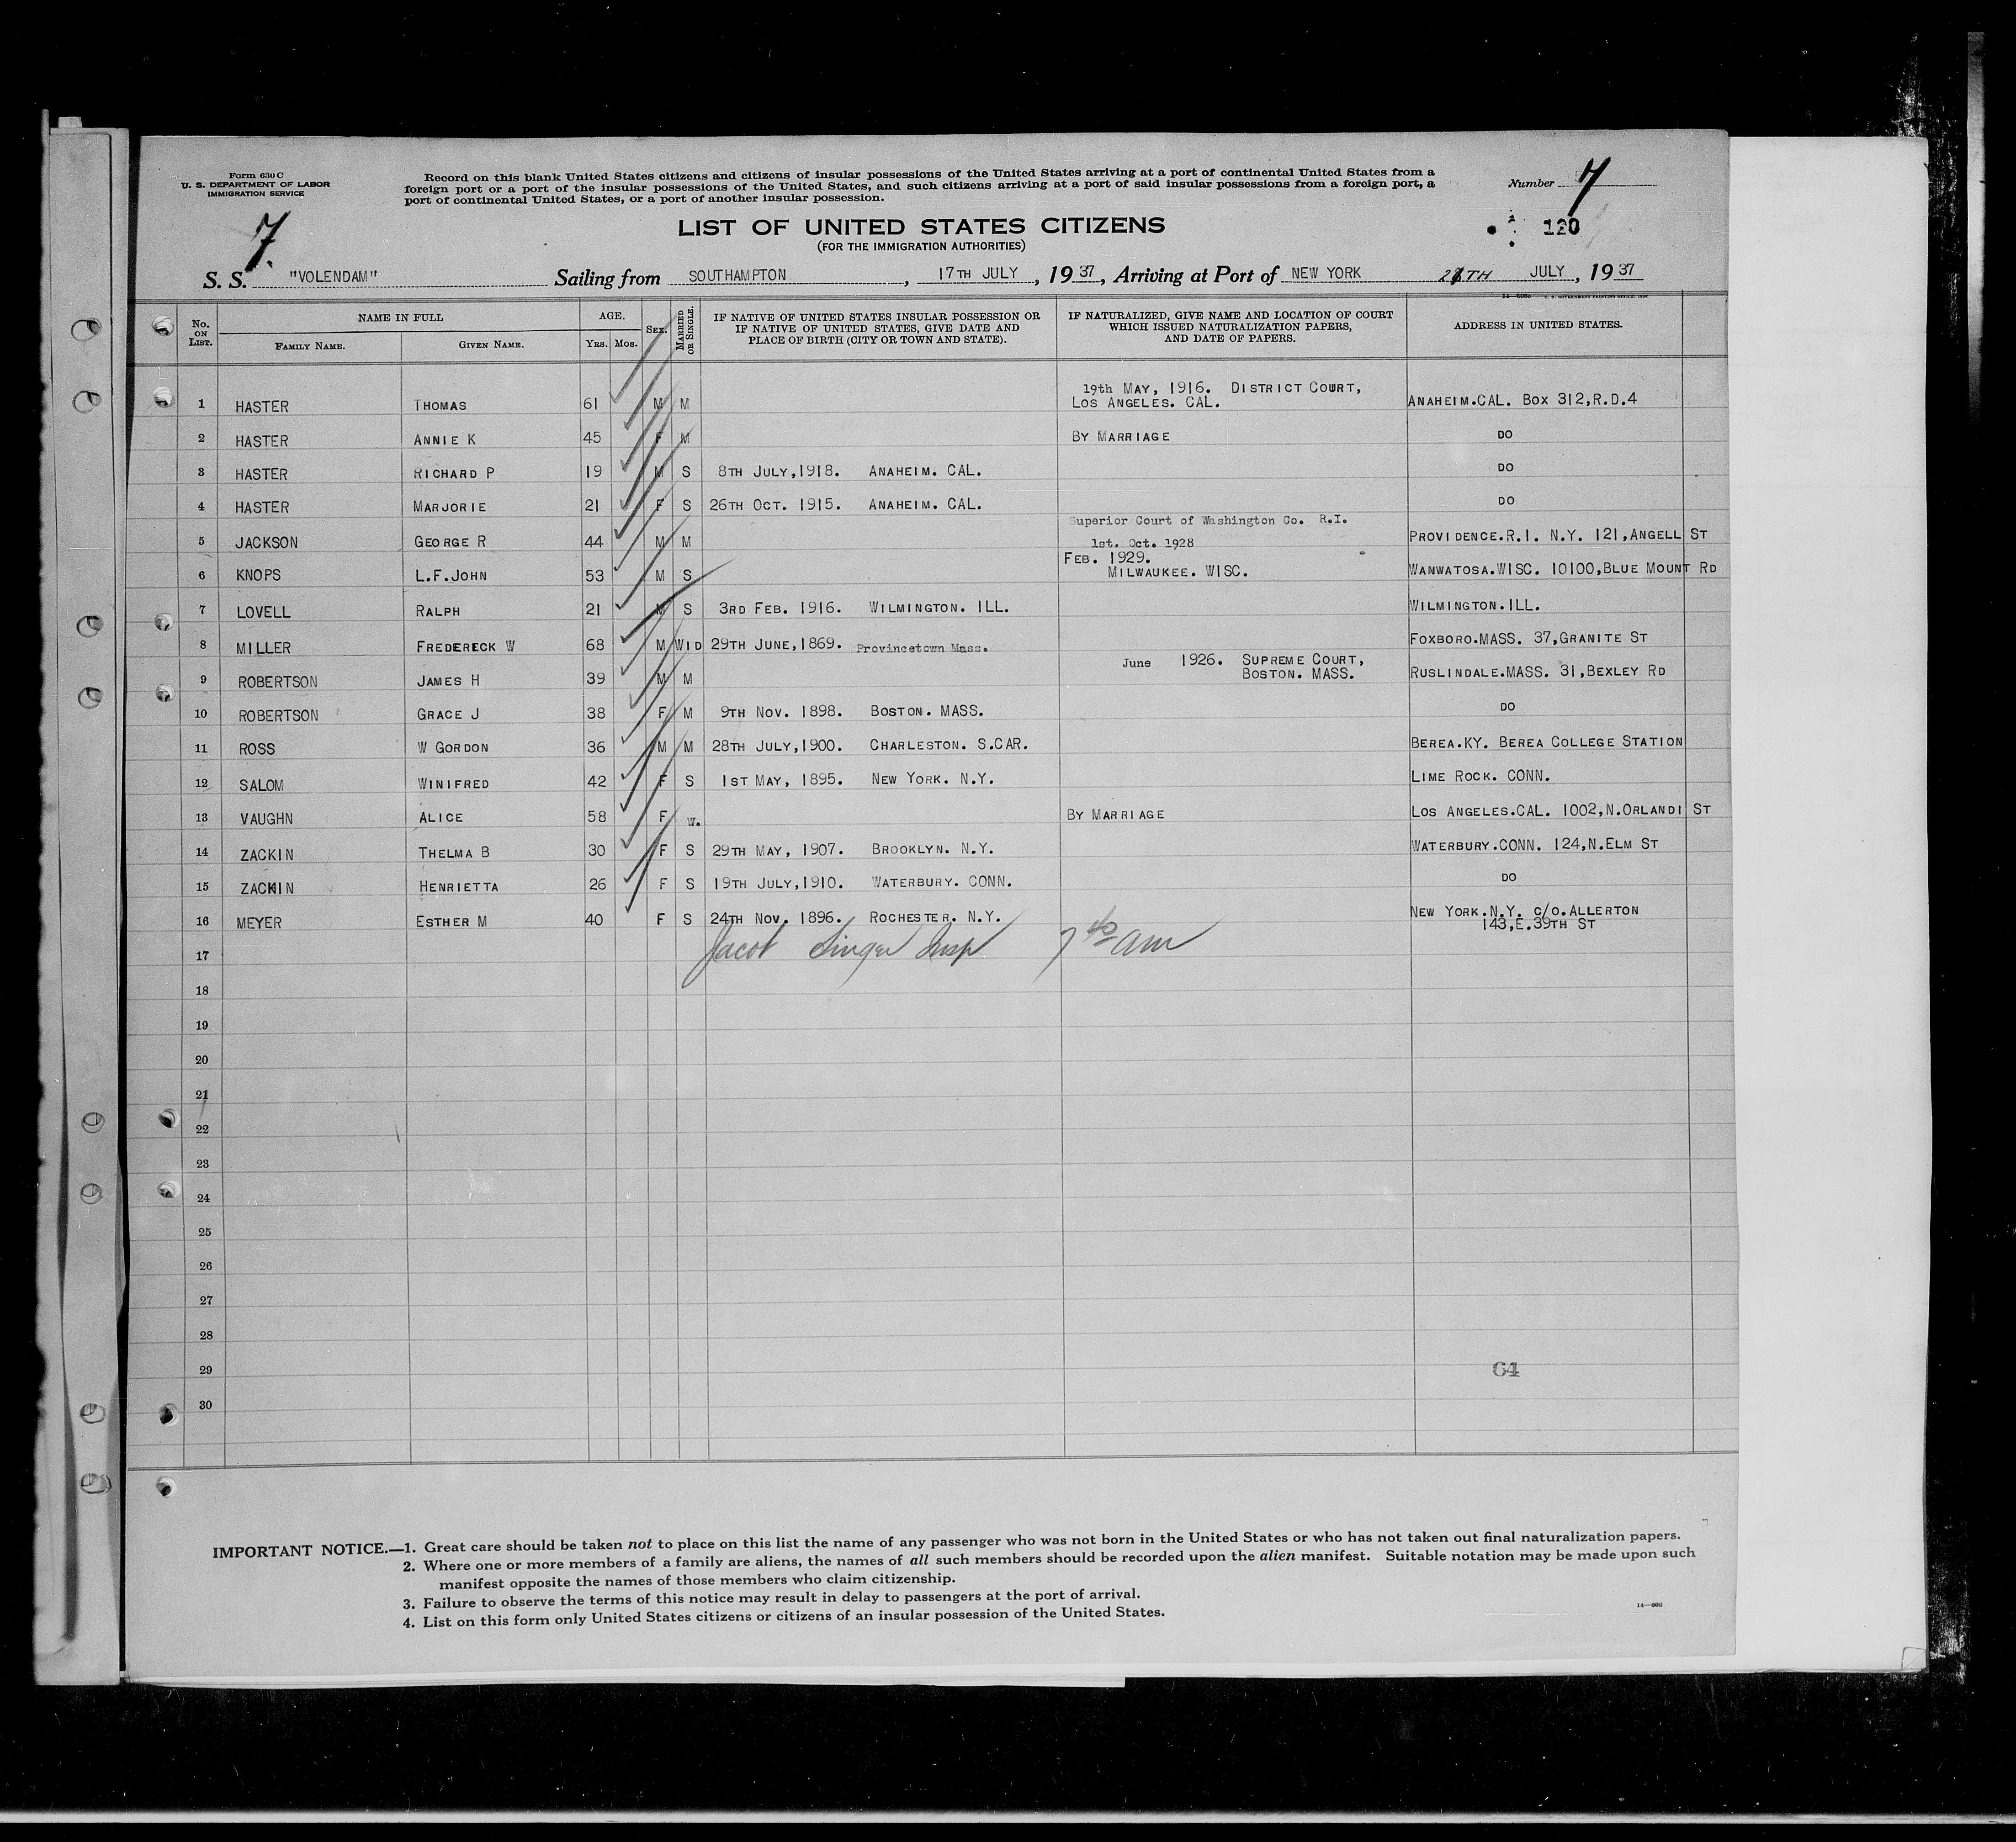 Form 630 C
U. S. DEPARTMENT OF LABOR
IMMIGRATION SERVICE
Record on this blank United States citizens and citizens of insular possessions of the United States arriving at a port of continental United States from a
foreign port or a port of the insular possessions of the United States, and such citizens arriving at a port of said insular possessions from a foreign port, a
port of continental United States, or a port of another insular possession.
Number 7
7.
LIST OF UNITED STATES CITIZENS
(FOR THE IMMIGRATION AUTHORITIES)
120
S. S. "VOLENDAM" Sailing from SOUTHAMPTON, 17TH JULY, 1937, Arriving at Port of NEW YORK JULY, 1937
No. ON LIST. NAME IN FULL FAMILY NAME. GIVEN NAME. AGE. YRS. MOS. SEX. MARRIED OR SINGLE. IF NATIVE OF UNITED STATES INSULAR POSSESSION OR IF NATIVE OF UNITED STATES, GIVE DATE AND PLACE OF BIRTH (CITY OR TOWN AND STATE). IF NATURALIZED, GIVE NAME AND LOCATION OF COURT WHICH ISSUED NATURALIZATION PAPERS, AND DATE OF PAPERS. ADDRESS IN UNITED STATES.
1 HASTER THOMAS 61 M M 19th MAY, 1916. DISTRICT COURT, LOS ANGELES. CAL. ANAHEIM.CAL. BOX 312,R.D.4
2 HASTER ANNIE K 45 F M BY MARRIAGE DO
3 HASTER RICHARD P 19 M S 8TH JULY,1918. ANAHEIM. CAL. DO
4 HASTER MARJORIE 21 F S 26TH OCT. 1915. ANAHEIM. CAL. DO
5 JACKSON GEORGE R 44 M M Superior Court of Washington Co. R.I. 1st. Oct. 1928 PROVIDENCE.R.I. N.Y. 121,ANGELL ST
6 KNOPS L.F.JOHN 53 M S FEB. 1929. MILWAUKEE. WISC. WANWATOSA.WISC. 10100,BLUE MOUNT RD
7 LOVELL RALPH 21 M S 3RD FEB. 1916. WILMINGTON. ILL. WILMINGTON.ILL.
8 MILLER FREDERECK W 68 M WID 29TH JUNE,1869. Provincetown Mass. FOXBORO.MASS. 37,GRANITE ST
9 ROBERTSON JAMES H 39 M M June 1926. SUPREME COURT, BOSTON. MASS. RUSLINDALE.MASS. 31,BEXLEY RD
10 ROBERTSON GRACE J 38 F M 9TH NOV. 1898. BOSTON. MASS. DO
11 ROSS W GORDON 36 M M 28TH JULY,1900. CHARLESTON. S.CAR. BEREA.KY. BEREA COLLEGE STATION
12 SALOM WINIFRED 42 F S 1ST MAY, 1895. NEW YORK. N.Y. LIME ROCK. CONN.
13 VAUGHN ALICE 58 F W. BY MARRIAGE LOS ANGELES.CAL. 1002,N.ORLANDI ST
14 ZACKIN THELMA B 30 F S 29TH MAY, 1907. BROOKLYN. N.Y. WATERBURY.CONN. 124,N.ELM ST
15 ZACKIN HENRIETTA 26 F S 19TH JULY,1910. WATERBURY. CONN. DO
16 MEYER ESTHER M 40 F S 24TH NOV. 1896. ROCHESTER. N.Y. NEW YORK.N.Y. C/O.ALLERTON 143,E.39TH ST
17 Jacob Singer Insp 7 40 am
18
19
20
21
22
23
24
25
26
27
28
29 64
30
IMPORTANT NOTICE.—1. Great care should be taken not to place on this list the name of any passenger who was not born in the United States or who has not taken out final naturalization papers.
2. Where one or more members of a family are aliens, the names of all such members should be recorded upon the alien manifest. Suitable notation may be made upon such
manifest opposite the names of those members who claim citizenship.
3. Failure to observe the terms of this notice may result in delay to passengers at the port of arrival.
4. List on this form only United States citizens or citizens of an insular possession of the United States.